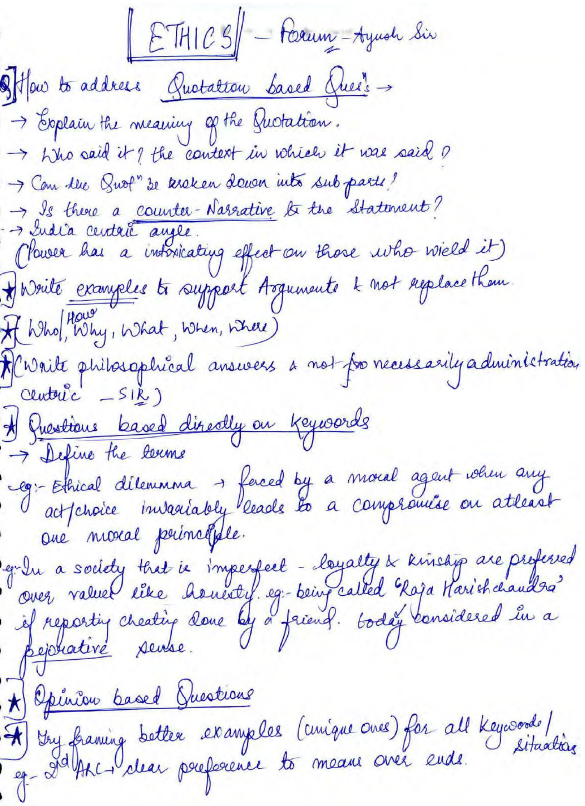 ETHICS - Forum - Ayush Sir
Q] How to address Quotation based Ques's →
→ Explain the meaning of the Quotation.
→ Who said it? the context in which it was said?
→ Can the Quotn be broken down into sub parts?
→ Is there a counter-Narrative to the Statement?
→ India centric angle.
(Power has a intoxicating effect on those who wield it)
★ Write examples to support Arguments & not replace them.
★ (Who/How, Why, What, When, Where)
★ (Write philosophical answers & not necessarily administration
centric - SIR)
★ Questions based directly on keywords
→ Define the terms
eg:- Ethical dilemmma → faced by a moral agent when any
act/choice invariably leads to a compromise on atleast
one moral principle.
eg:- In a society that is imperfect - loyalty & kinship are preferred
over values like honesty. eg:- being called 'Raja Harishchandra'
if reportig cheatig done by a friend. today considered in a
pejorative sense.
★ Opinion based Questions
★ Try framing better examples (unique ones) for all keywords/
situations
eg:- 2nd ARC → clear preference to means over ends.